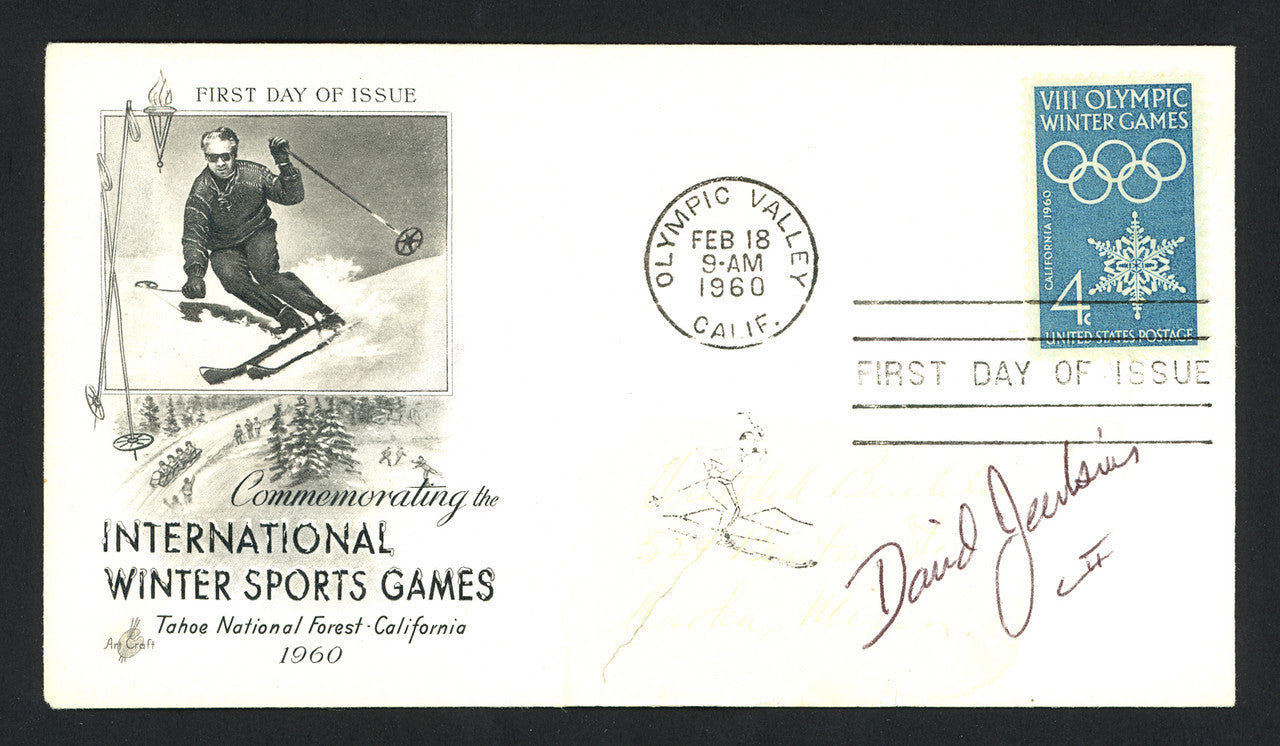 FIRST DAY OF ISSUE
Commemorating the
INTERNATIONAL
WINTER SPORTS GAMES
Tahoe National Forest · California
1960
Art Craft
OLYMPIC VALLEY
FEB 18
9-AM
1960
CALIF.
VIII OLYMPIC
WINTER GAMES
CALIFORNIA 1960
4c
UNITED STATES POSTAGE
FIRST DAY OF ISSUE
David Jenkins
II